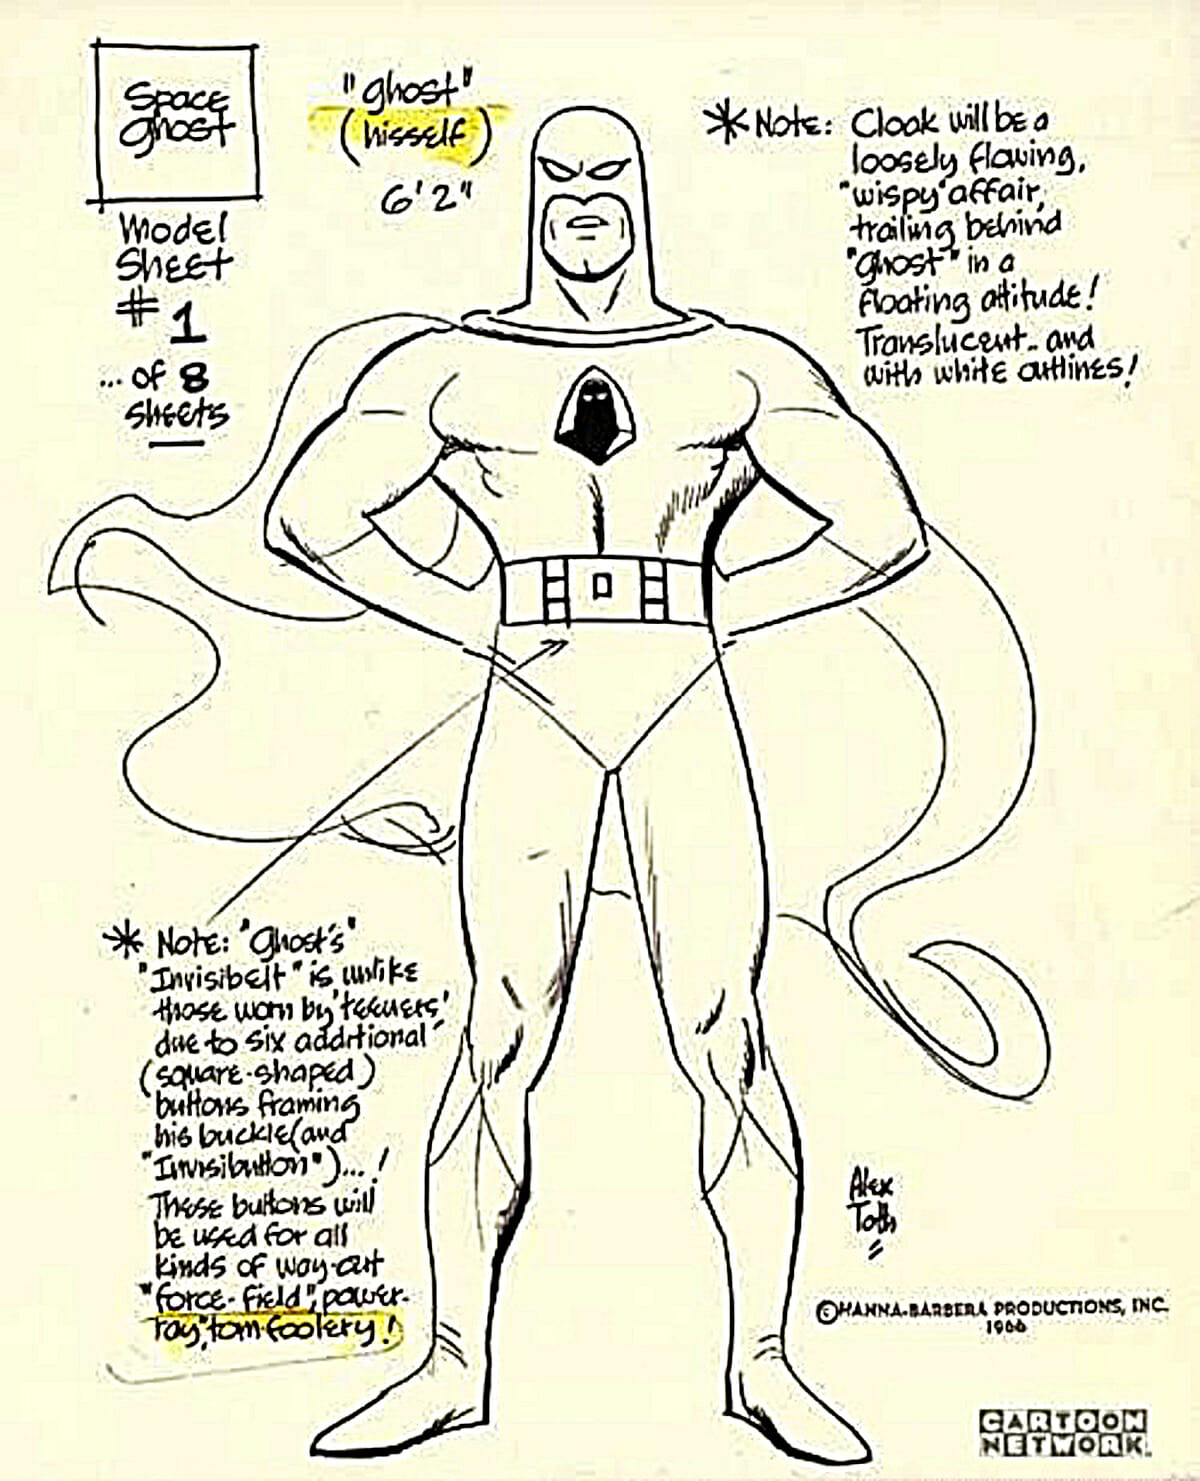 Space
Ghost
Model
Sheet
# 1
... of 8
Sheets
"Ghost"
(hisself)
6'2"
* Note: Cloak will be a
loosely flowing,
"wispy" affair,
trailing behind
"Ghost" in a
floating attitude!
Translucent.. and
with white outlines!
* Note: "Ghost's"
"Invisibelt" is unlike
those worn by 'teeners'
due to six additional
(square-shaped)
buttons framing
his buckle (and
"Invisibutton")...!
These buttons will
be used for all
kinds of way-out
"force-field", power-
ray, tom-foolery!
Alex
Toth
© HANNA-BARBERA PRODUCTIONS, INC.
1966
CARTOON
NETWORK.